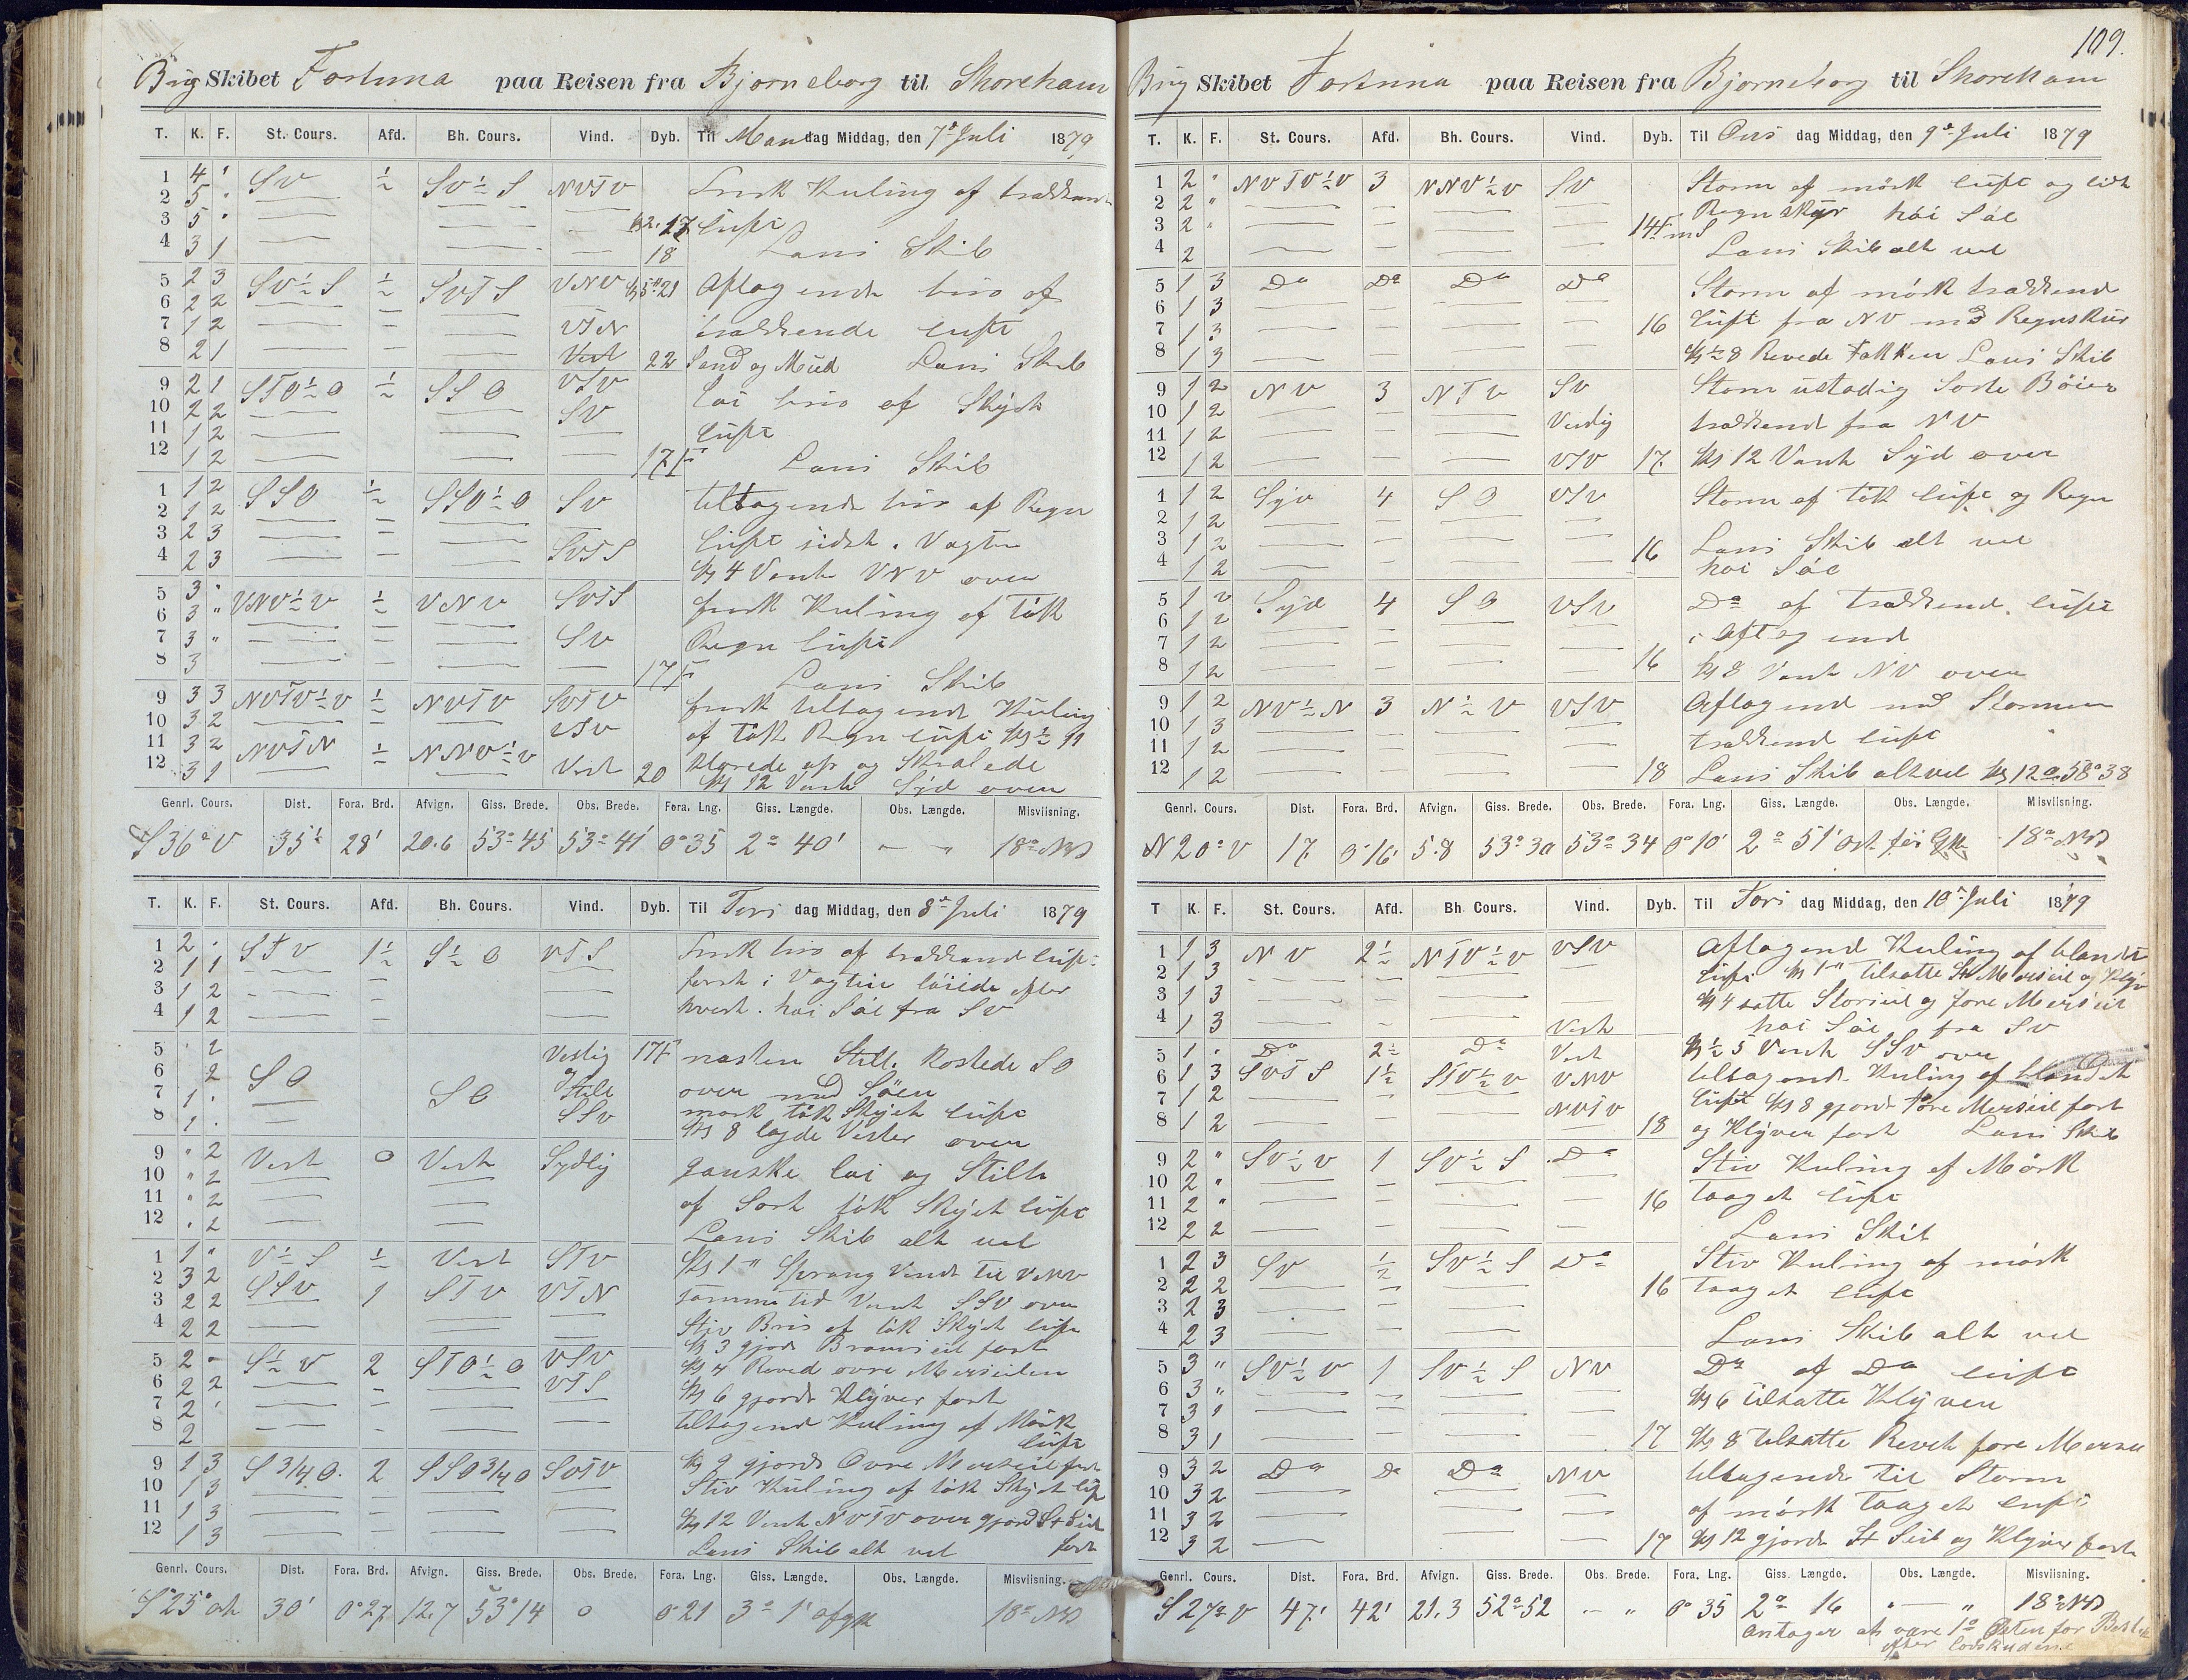 Brig Skibet Fortuna paa Reisen fra Bjorneborg til Shoreham
T. K. F. St. Cours. Afd. Bh. Cours. Vind. Dyb. Til Mandag Middag, den 7de Juli 1879
1 4 " SV ½ SV½S NVTV Frisk Kuling af trækkende
2 5 "
3 5 " 17 luft
4 3 1 18 Læns Skib
5 2 3 SV½S ½ SVTS VNV 21 Aftagende bris af
6 2 2 trækkende luft
7 1 2 VTN
8 2 1 Vest 22 Sand og Mud Læns Skib
9 2 1 STO½O ½ SSO VSV løi bris af Skyet
10 2 2 SV
11 1 2 luft
12 1 2 17F Læns Skib
1 1 2 SSO ½ SSO½O SV tiltagende bris af Regn
2 1 2
3 2 3 luft sidst i Vagten
4 2 3 SVTS Kl 4 Vendte VNV over
5 3 " VNV½V ½ VNV SVTS frisk Kuling af tøk
6 3 "
7 3 " SV Regn luft
8 3 17F Læns Skib
9 3 3 NVTV½V ½ NVTV SVTV frisk tiltagende Kuling
10 3 2 VSV af tøk Regn luft Kl ½ 11
11 3 2 NVTN ½ NNV½V klarede op og Skralede
12 3 1 Vest 20 Kl 12 Vendte Syd over
Genrl. Cours. Dist. Fora. Brd. Afvign. Giss. Brede. Obs. Brede. Fora. Lng. Giss. Længde. Obs. Længde. Misviisning.
S 36° V 35½ 28' 20.6 53°45 53°41' 0°35 2°40' – " 18° NV
T. K. F. St. Cours. Afd. Bh. Cours. Vind. Dyb. Til Tirsdag Middag, den 8de Juli 1879
1 2 " STV 1½ S½O VTS Frisk bris af trækkende luft
2 1 1 først i Vagten løiede efter
3 1 2
4 1 2 hvert. høi Søe fra SV
5 " 2 Vestlig 17F næsten Stille. Kostede SO
6 " 2 SO og Stile over med Søen
7 1 " SO SSV mørk tøk Skyet luft
8 1 " Kl 8 lagde Vester over
9 " 2 Vest 0 Vest Sydlig ganske løi og Stille
10 " 2
11 " 2 af Sort tøk Skyet luft
12 " 2 Læns Skib alt vel
1 1 " V½S ½ Vest STV Kl 1 " Sprang Vinden til VNV
2 3 2 SSV 1 STV VTN samme tid Vendte SSV over
3 2 2 Stiv Bris af tøk Skyet luft
4 2 2 Kl 3 gjorde Bramseil fast
5 2 " S½V 2 STO½O VSV Kl 4 Reved øvre Merseilen
6 2 2 VTS Kl 6 gjorde Klyver fast
7 2 " tiltagende Kuling af Mørk
8 2 luft
9 1 3 S 3/4 O. 2 SSO 3/4 O SVTV Kl 9 gjorde Øvre Merseil fast
10 1 3 Stiv Kuling af tøk Skyet luft
11 1 3 Kl 12 Vendte NVTV over gjorde St Seil
12 1 3 Læns Skib alt vel fast
Genrl. Cours. Dist. Fora. Brd. Afvign. Giss. Brede. Obs. Brede. Fora. Lng. Giss. Længde. Obs. Længde. Misviisning.
S 25° ost 30' 0°27 12.7 53°14 0 0°21 3° 1' 18° NV
109.
Brig Skibet Fortuna paa Reisen fra Bjorneborg til Shoreham
T. K. F. St. Cours. Afd. Bh. Cours. Vind. Dyb. Til Onsdag Middag, den 9de Juli 1879
1 2 " NVTV½V 3 NNV½V SV Storm af mørk luft og lidt
2 2 " Regn skyr høi Søe
3 2 " 14F
4 2 Læns Skib alt vel
5 1 3 Do Do Do Do Storm af mørk trækkend
6 1 3
7 1 3 16 luft fra NV med Regnskur
8 1 3 Kl ½ 8 Revede Fokken Læns Skib
9 1 2 NV 3 NTV SV Storm ustadig Sorte Bøier
10 1 2 Vestlig trækkend fra NV
11 1 2
12 1 2 VSV 17 Kl 12 Vendte Syd over
1 1 2 Syd 4 SO VSV Storm af tøk luft og Regn
2 1 2
3 1 2 16 Læns Skib alt vel
4 1 2 høi Søe
5 1 2 Syd 4 SO VSV Do af trækkend luft
6 1 2
7 1 2 i Aftagend
8 1 2 16 Kl 8 Vendte NV over
9 1 2 NV½N 3 N½V VSV Aftagend med Stormen
10 1 3 trækkend luft
11 1 2
12 1 2 18 Læns Skib alt vel Kl 12
Genrl. Cours. Dist. Fora. Brd. Afvign. Giss. Brede. Obs. Brede. Fora. Lng. Giss. Længde. Obs. Længde. Misviisning.
N 20° V 17 0°16' 5.8 53°30 53°34 0°10' 2°51' ost 18° NV
T K. F. St. Cours. Afd. Bh. Cours. Vind. Dyb. Til Torsdag Middag, den 10de Juli 1879
1 1 3 NV 2½ NTV½V VSV Aftagend Kuling af blandet
2 1 3 luft Kl 1 " tilsatte St Merseil og Klyv
3 1 3 Kl 4 satte Storseil og fore Merseil
4 1 3 Vest høi Søe fra SV
5 1 " Do 2½ Do Vest Kl ½ 5 Vendte SSV over
6 1 3 SVTS 1½ STV½V VNV tiltagende Kuling af blandet
7 1 2 NVTV luft Kl 8 gjorde fore Merseil fast
8 1 2 18 og Klyver fast Læns Skib
9 2 " SV½V 1 SV½S Do Stiv Kuling af Mørk
10 2 "
11 2 " 16 taaget luft
12 2 2 Læns Skib
1 2 3 SV ½ SV½S Do Stiv Kuling af mørk
2 2 2 16 taaget luft
3 2 3
4 2 3 Læns Skib alt vel
5 3 " SV½V 1 SV½S NV Do af Do luft
6 3 " Kl 6 tilsatte Klyven
7 3 1
8 3 1 17 Kl 8 tilsatte Revet fore Mersei
9 3 2 Do Do Do NV tiltagende til Storm
10 3 2
11 3 2 af mørk taaget luft
12 3 2 17 Kl 12 gjorde St Seil og Klyver fast
Genrl. Cours. Dist. Fora. Brd. Afvign. Giss. Brede. Obs. Brede. Fora. Lng. Giss. Længde. Obs. Længde. Misviisning.
S 27° V 47' 42' 21.3 52°52 – " 0°35 2° 16 " – " 18° NV
antager at være 1° Østen for Bestik
efter